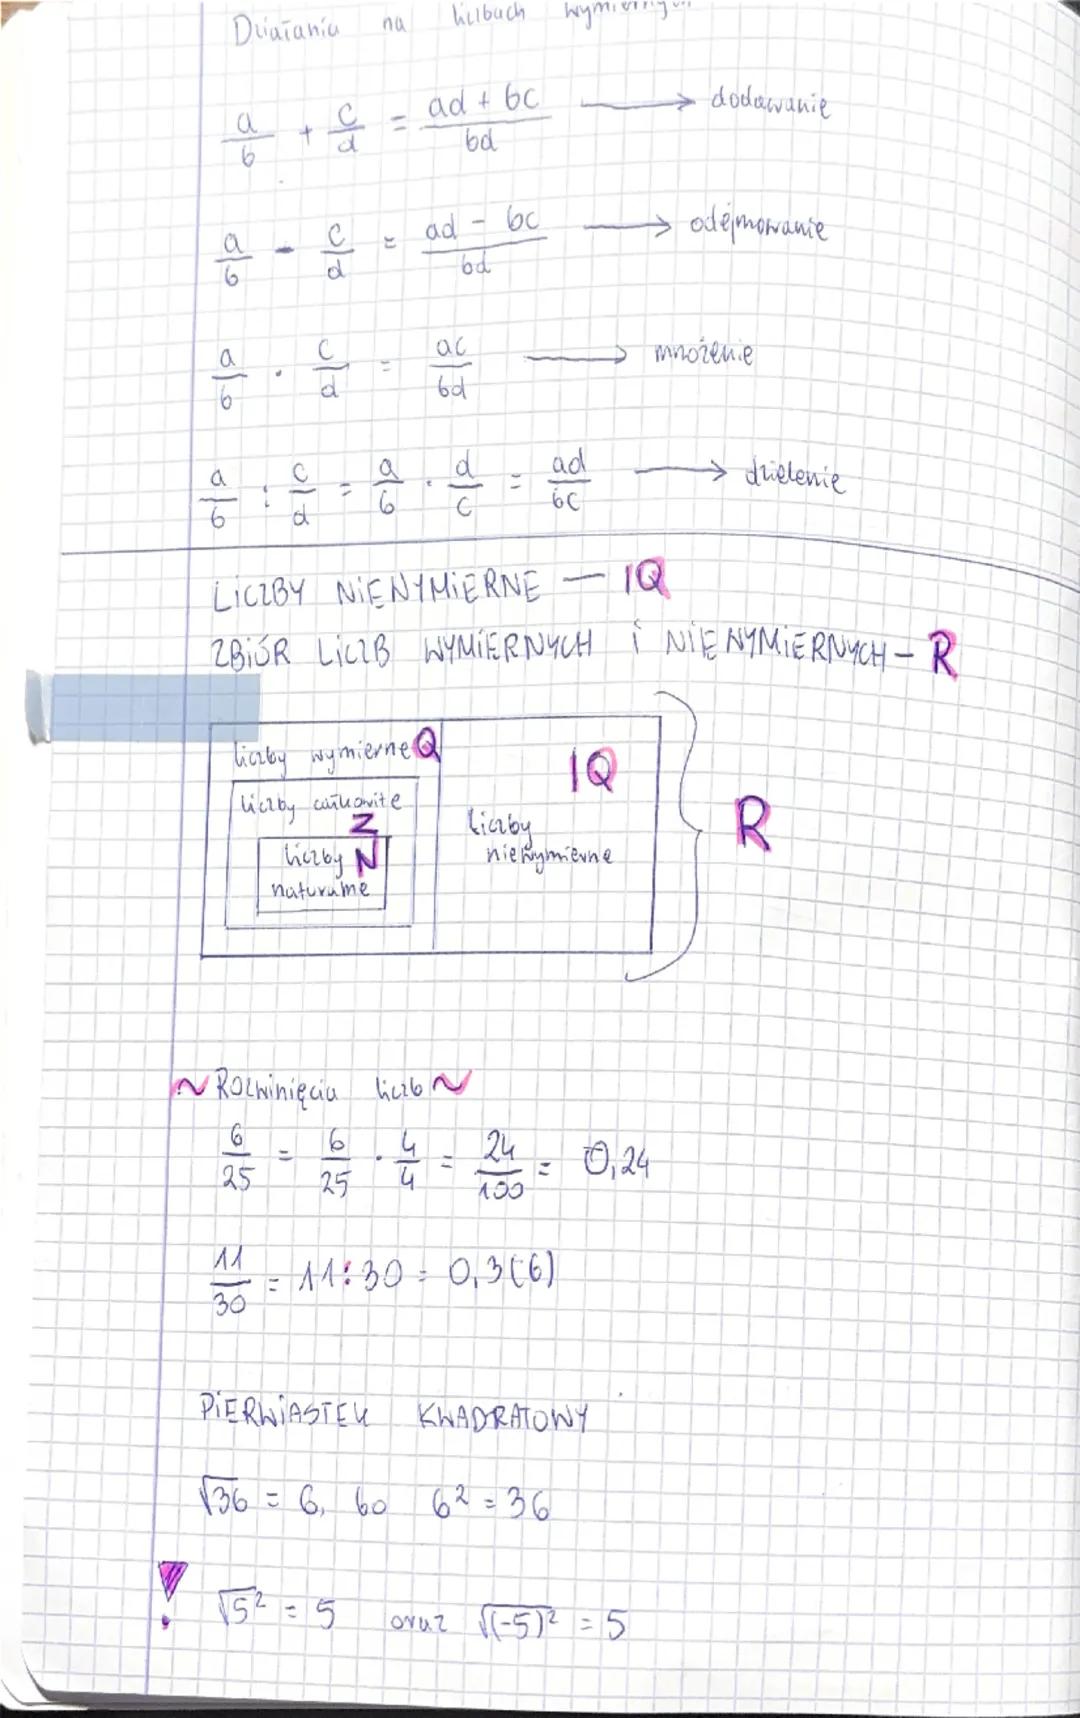 Działania na liczbach wymiernych
a/b + c/d = ad + bc/bd → dodawanie
a/b - c/d = ad - bc/bd → odejmowanie
a/b · c/d = ac/bd → mnożenie
a/b : c/d = a/b · d/c = ad/bc → dzielenie
LICZBY NIEWYMIERNE — IQ
ZBIÓR LICZB WYMIERNYCH i NIEWYMIERNYCH - R
liczby wymierne Q
IQ
liczby całkowite
Z
R
liczby N
naturalne
liczby
niewymierne
~ Rozwinięcia liczb ~
6/25 = 6/25 · 4/4 = 24/100 = 0,24
11/30 = 11:30 = 0,3(6)
PIERWIASTEK KWADRATOWY
√36 = 6, bo 6² = 36
! √5² = 5 oraz √(-5)² = 5